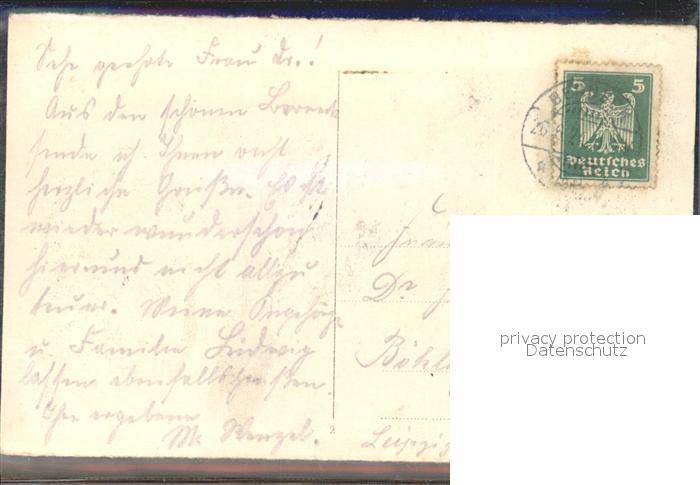 Sehr geehrte Frau Dr.!
Aus dem schönen Berneck
sende ich Ihnen recht
herzliche Grüße. Es ist
wieder wunderschön
hier und nicht allzu
teuer. Meine Angehörg.
u. Familie Ludwig
lassen ebenfalls grüßen.
Ihre ergebene
M. Wenzel.
5 5
Deutsches
Reich
Frau
Dr.
Böhl
Leipzig
2
privacy protection
Datenschutz